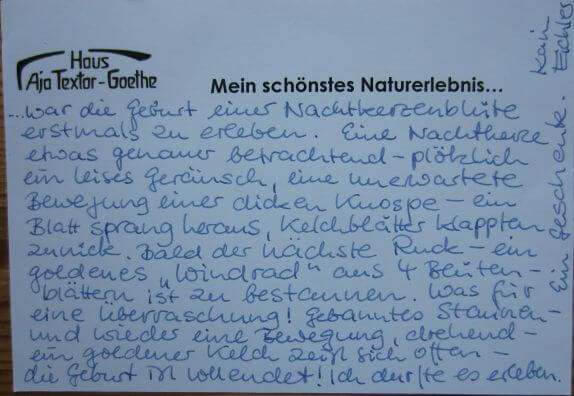 Haus
Aja Textor-Goethe
Mein schönstes Naturerlebnis...
...war die Geburt einer Nachtkerzenblüte
erstmals zu erleben. Eine Nachtkerze
etwas genauer betrachtend – plötzlich
ein leises Geräusch, eine unerwartete
Bewegung einer dicken Knospe – ein
Blatt sprang heraus, Kelchblätter klappten
zurück. Bald der nächste Ruck – ein
goldenes „Windrad" aus 4 Blüten-
blättern ist zu bestaunen. Was für
eine Überraschung! Gebanntes Staunen –
und wieder eine Bewegung, drehend –
ein goldener Kelch zeigt sich offen –
die Geburt ist vollendet! Ich durfte es erleben.
Ein Geschenk.
Eichler